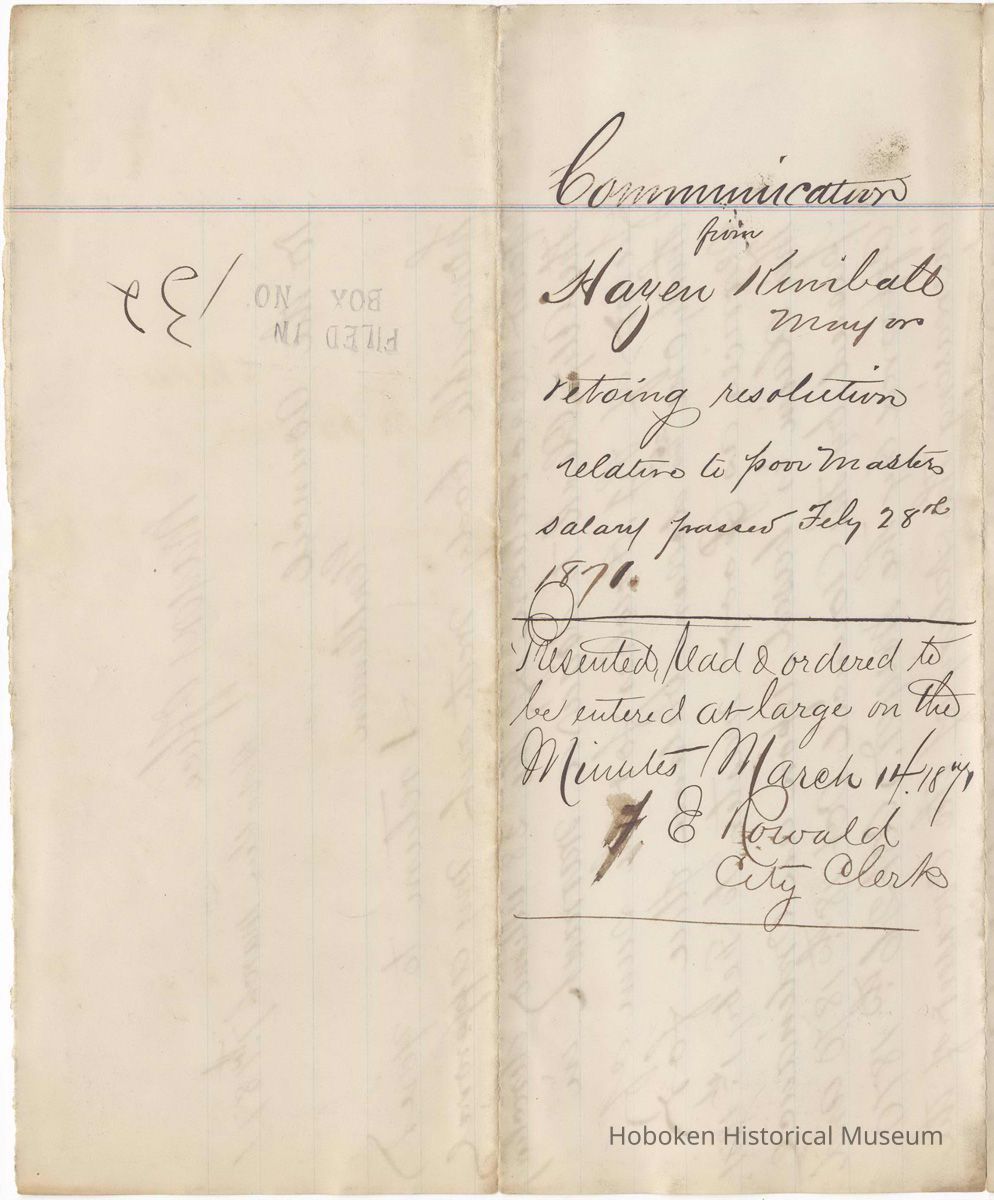 Communication
from
Hazen Kimball
Mayor
vetoing resolution
relative to poor Masters
salary passed Feby 28th
1871.
Presented, Read & ordered to
be entered at large on the
Minutes March 14. 1871
F. E Rowald
City Clerk
FILED IN
BOX NO.
Hoboken Historical Museum